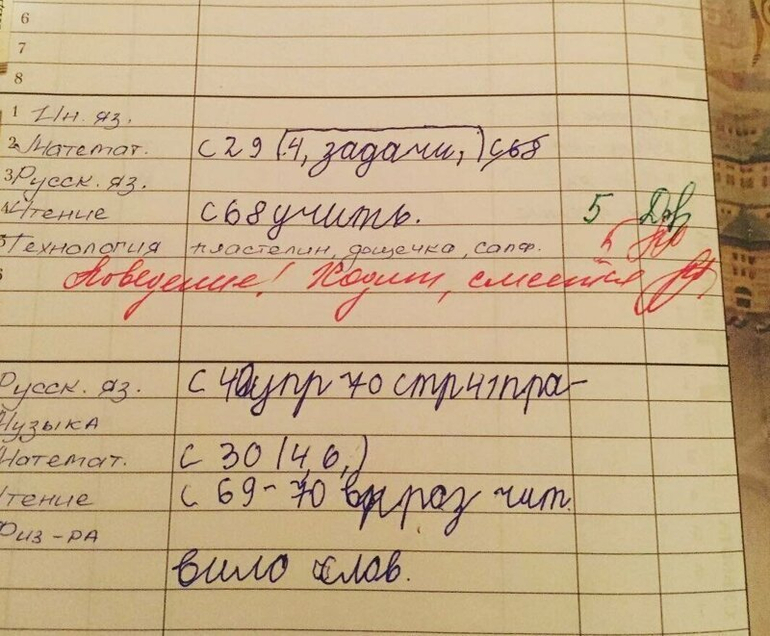 6
7
8
1 Ин. яз.
2 Математ. с 29 (4, задачи,) с 68
3 Русск. яз.
4 Чтение с 68 учить. 5
5 Технология пластелин, дощечка, салф. 5
Поведение! Ходит, смеётся
Русск. яз. с 40 упр 70 стр 41 пра-
Музыка
Математ. с 30 (4, 6,)
Чтение с 69-70 выраз чит.
Физ-ра
вило слов.